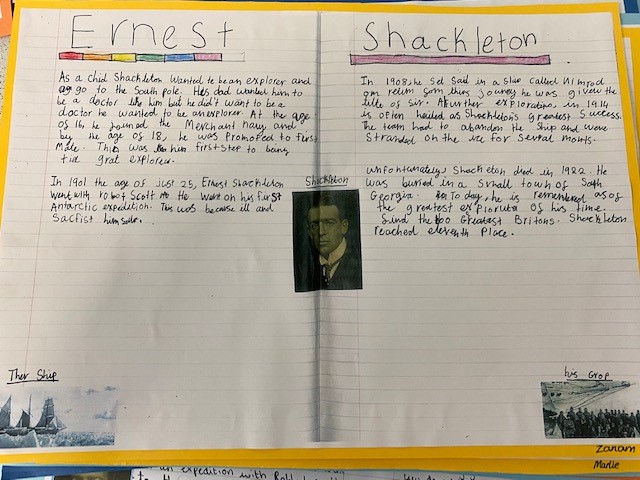 Ernest
Shackleton
As a chid Shackleton wanted to be an explorer and
go to the South pole. His dad wanted him to
be a doctor like him but he didn't want to be a
doctor he wanted to be an explorer. At the age
of 16, he Joined the Merchant navy and
by the age of 18, he was Promoted to First
Mate. This was him first step to being
the grat explorer.
In 1901 the age of Just 25, Ernest Shackleton
went with robot Scott he went on his first
Antarctic expedition. This was because ill and
Sacfist him
Shackleton
In 1908, he Set Sail in a Ship called Nimrod
om return Som thirs Journey he was given the
title of Sir. A further exploration, in 1914
is often hailed as Shackleton's greatest Success.
The team had to abandon the Ship and were
Stranded on the ice for Several monts.
unfortunately, Shackleton died in 1922. He
was buried in a Small town of South
Georgia. To day, he is remembered as of
the greatest of his time.
the 100 Greatest Britons. Shackleton
reached eleventh Place.
Ther Ship
his Grop
Zanam
Marlie
an expedition with